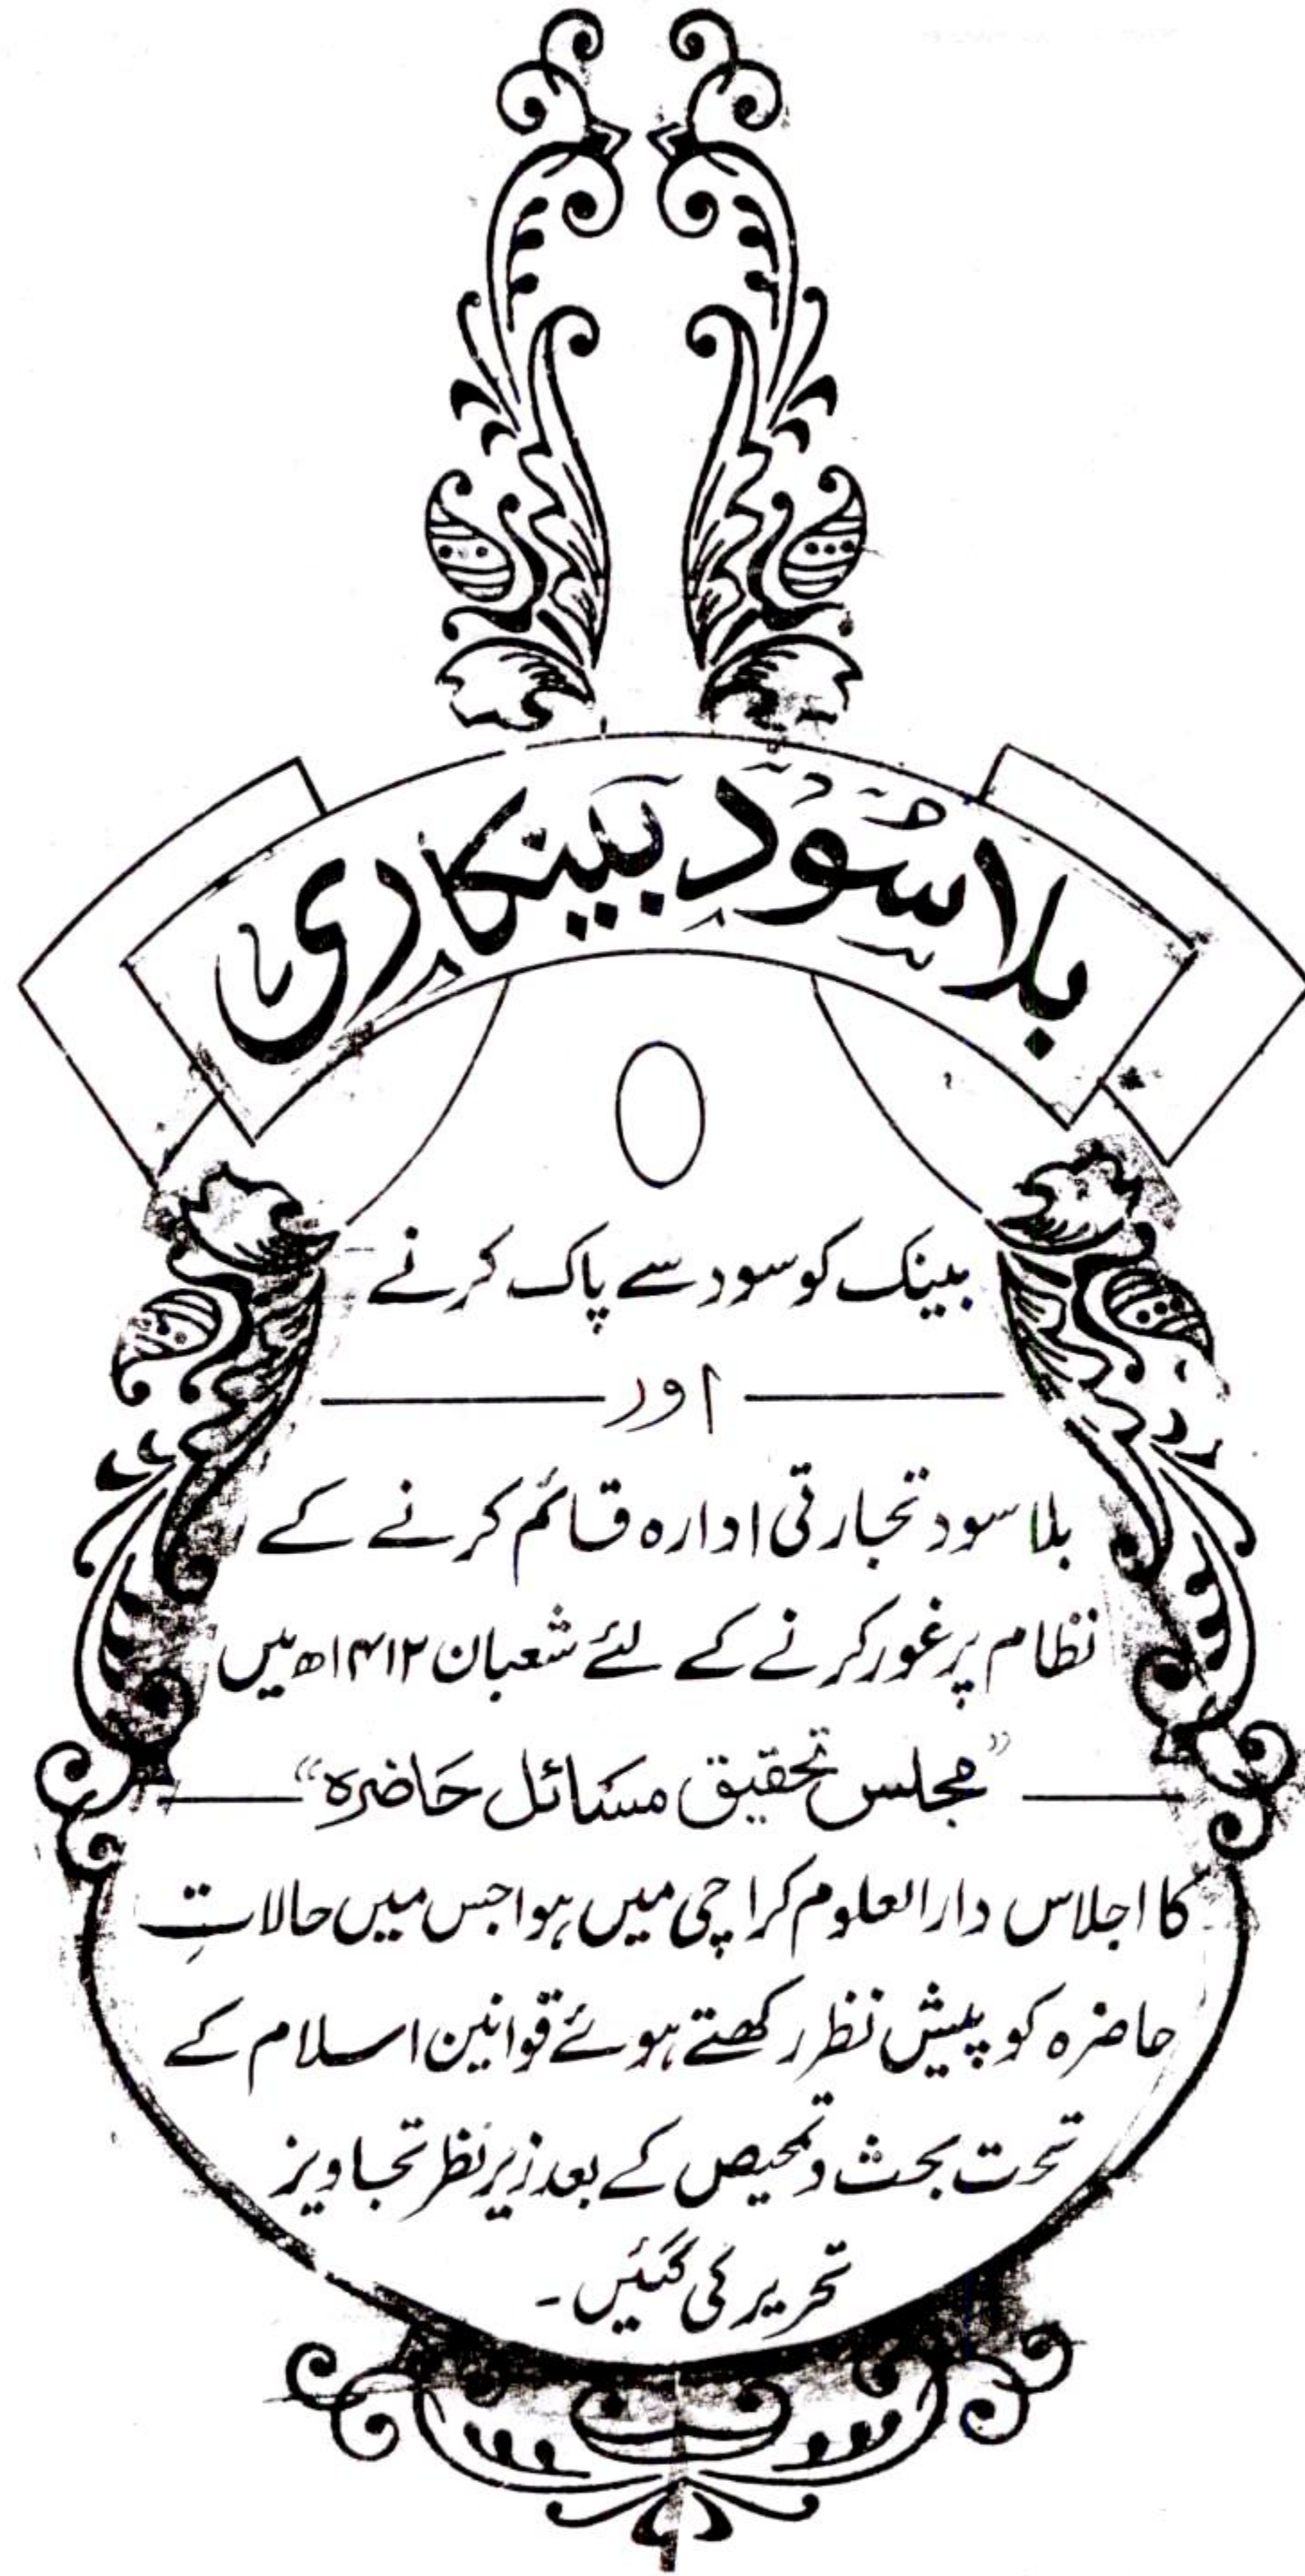 بلا سُوْد بینکاری
بینک کو سود سے پاک کرنے
اور
بلا سود تجارتی ادارہ قائم کرنے کے
نظام پر غور کرنے کے لئے شعبان ۱۴۱۲ھ میں
”مجلس تحقیق مسائل حاضرہ“
کا اجلاس دارالعلوم کراچی میں ہوا جس میں حالاتِ
حاضرہ کو پیش نظر رکھتے ہوئے قوانین اسلام کے
تحت بحث و تمحیص کے بعد زیر نظر تجاویز
تحریر کی گئیں۔